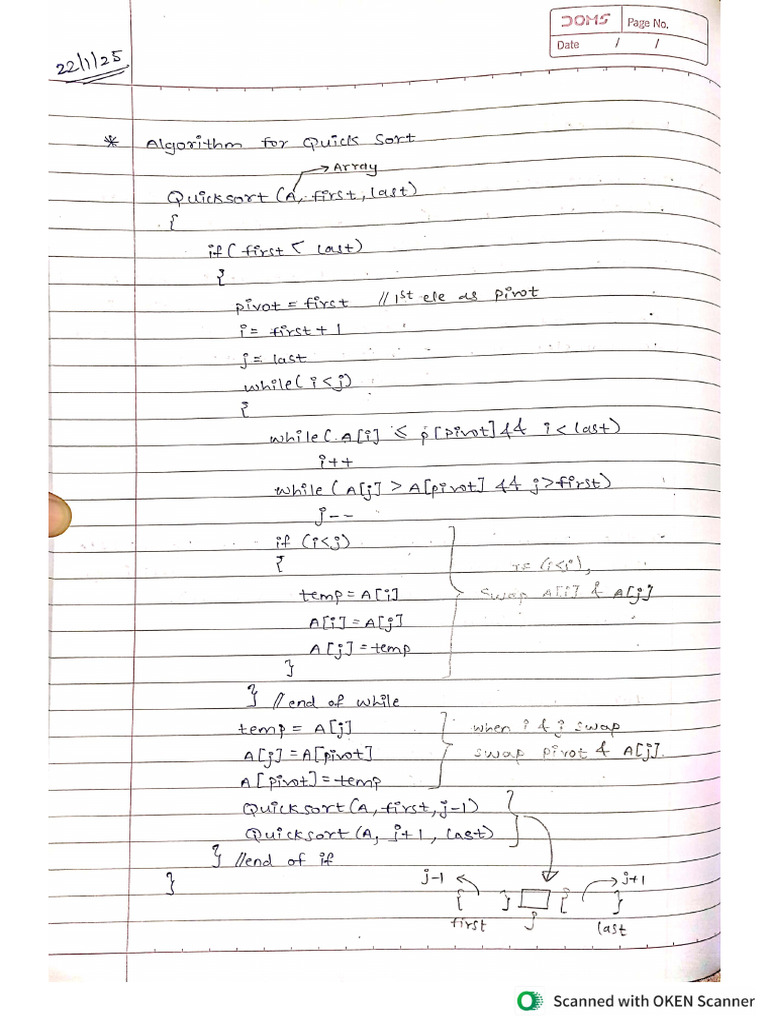 DOMS
Page No.
Date / /
22/1/25
* Algorithm for Quick Sort
→ Array
Quicksort (A, first, last)
{
if ( first < last)
{
pivot = first // 1st ele as pivot
i = first + 1
j = last
while( i < j)
{
while( A[i] ≤ p[pivot] && i < last)
i++
while ( A[j] > A[pivot] && j > first)
j--
if (i<j)
{
(i<j),
temp = A[i]
swap A[i] & A[j]
A[i] = A[j]
A[j] = temp
}
} // end of while
temp = A[j] when i & j swap
A[j] = A[pivot] swap pivot & A[j].
A[pivot] = temp
Quicksort (A, first, j-1)
Quicksort (A, j+1, last)
} //end of if
}
j-1 ← → j+1
{ } { }
first j last
Scanned with OKEN Scanner